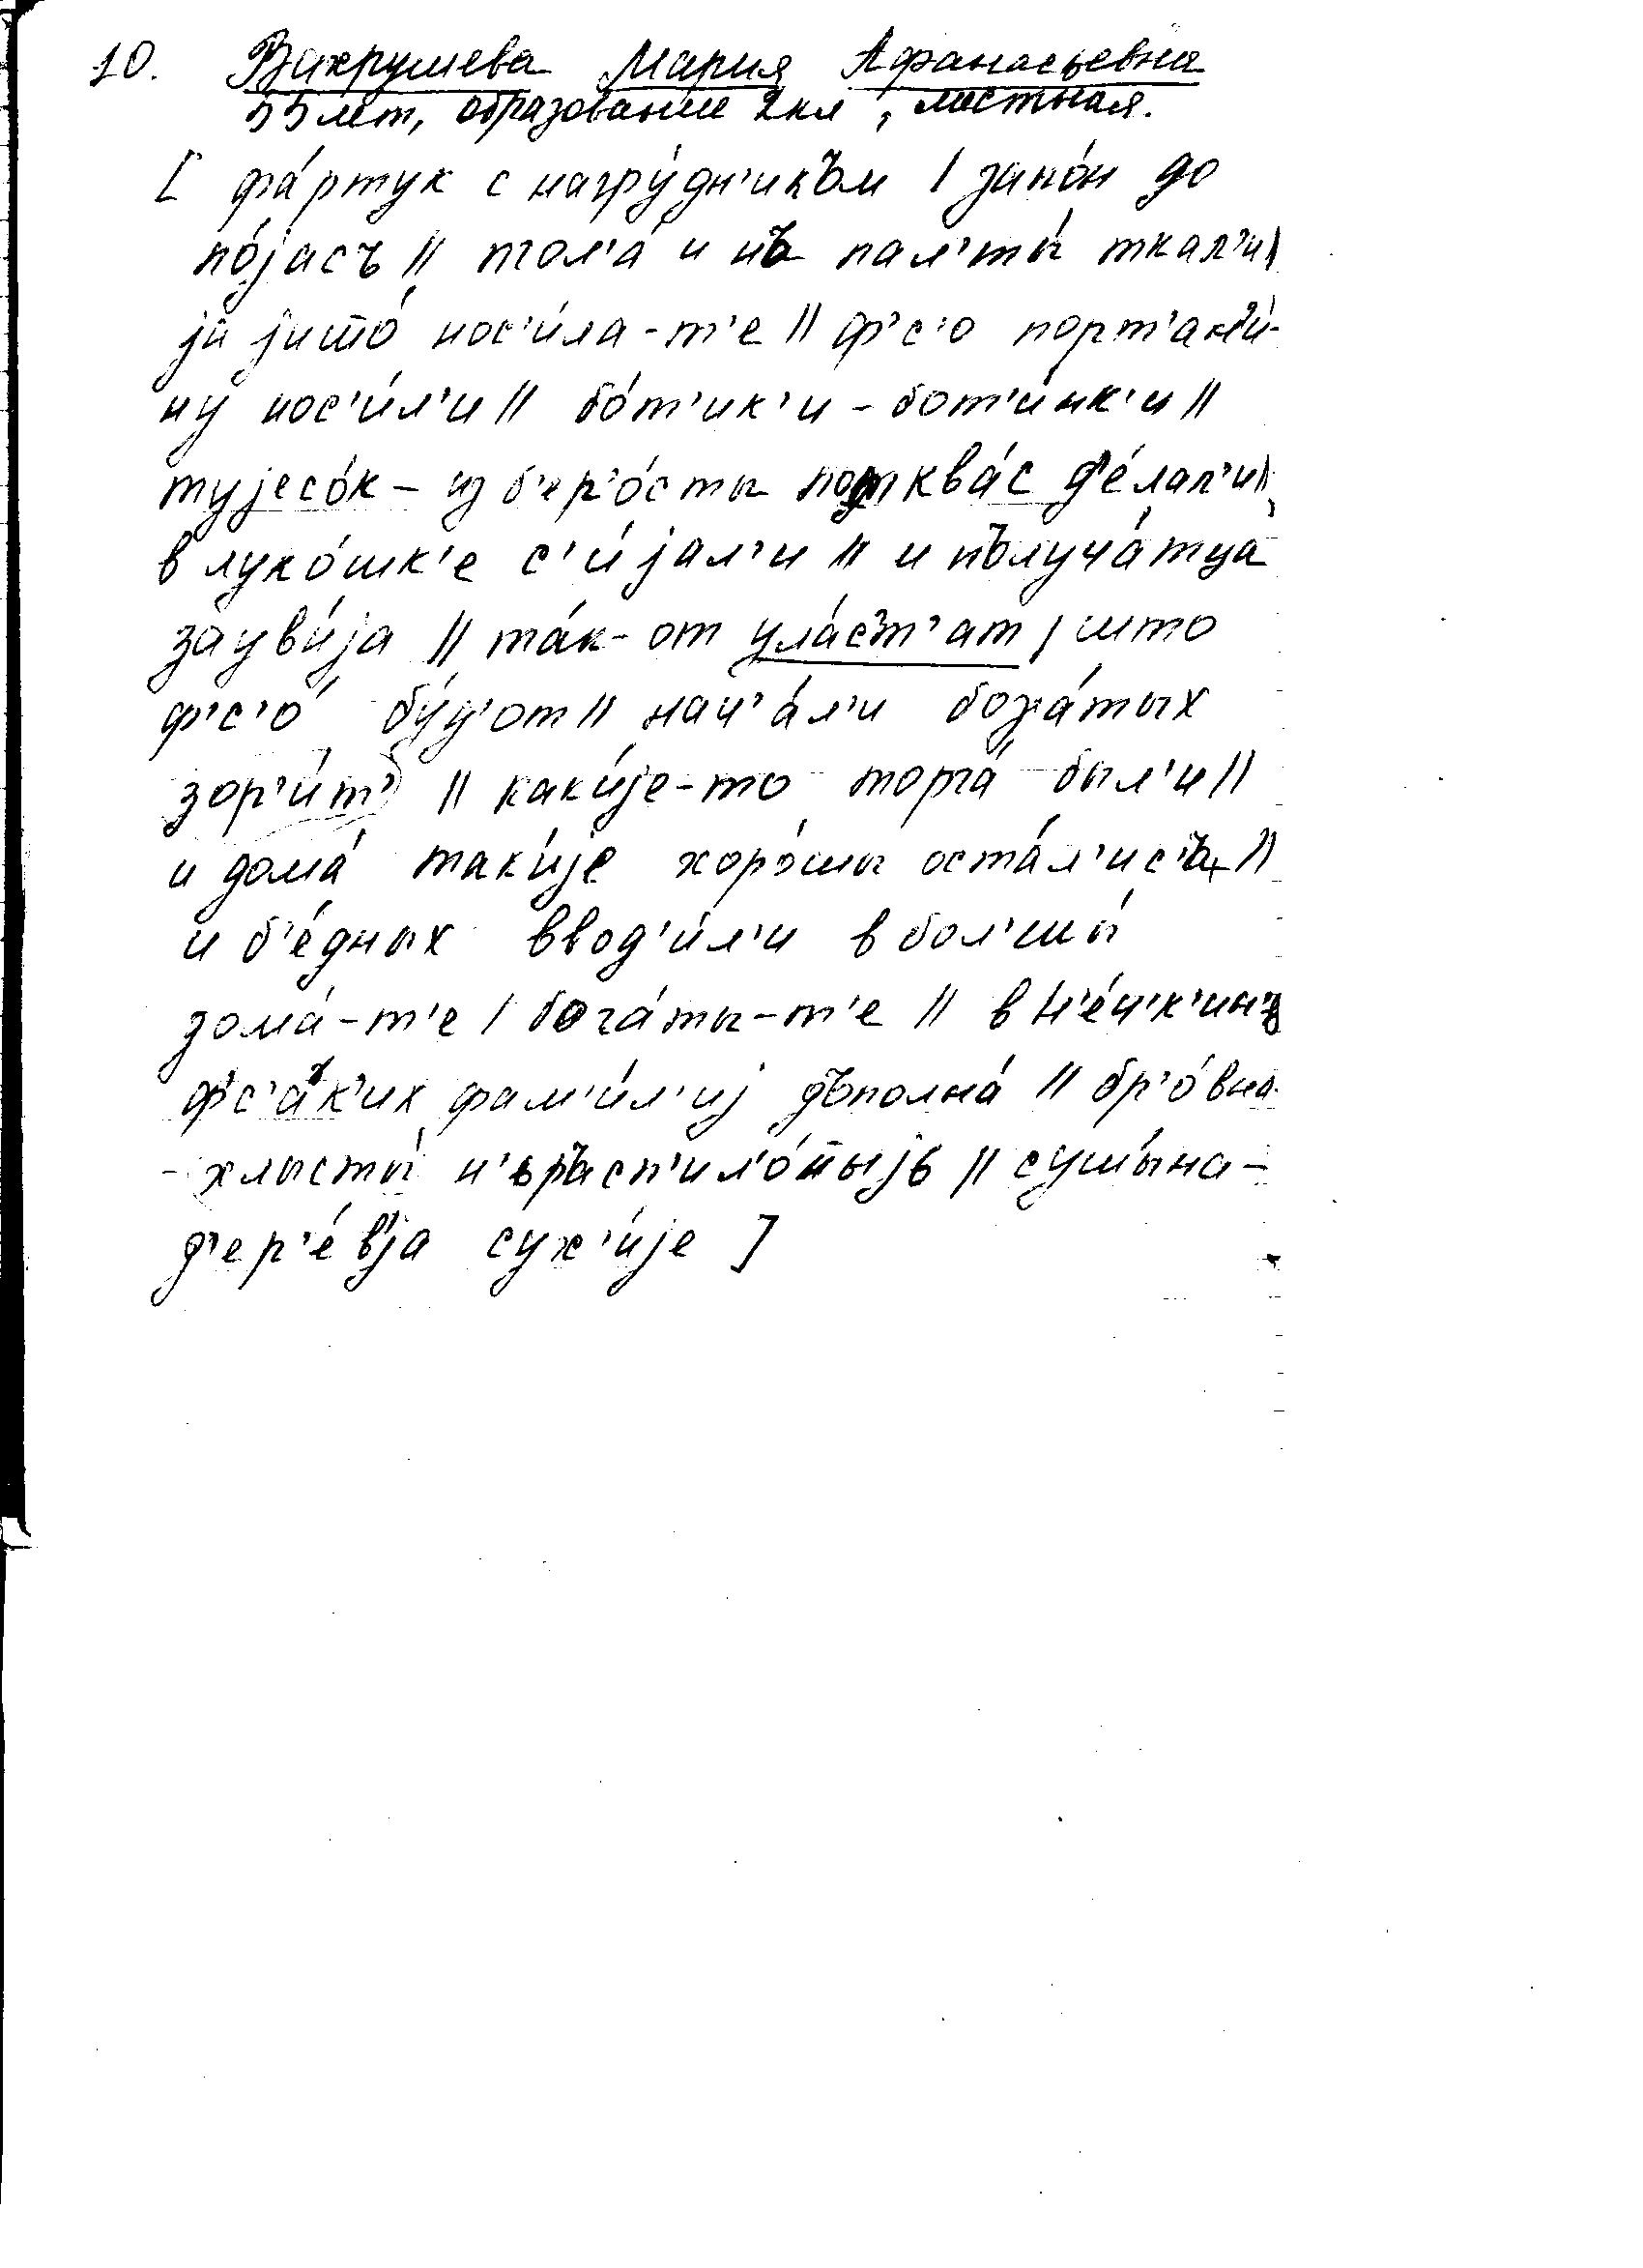 10. Вахрушева Мария Афанасьевна
55 лет, образование 2кл, местная.
[ фа́ртук с нагру́дн'икъм / запо́н до
по́јасъ // тол'а́ и нъ пал'ты́ ткал'и /
jа јишто́ нос'и́ла-т'е // ф'с'о порт'ани́-
ну нос'и́л'и // бо́т'ик'и - бот'и́нк'и //
тујесо́к - из б'ер'о́сты потква́с д'е́лал'и //
в луко́шк'е с'и́јал'и // и пълуча́тца
зауви́ја // та́к-от ула́ст'ат / што
ф'с'о́ бу́д'от // нач'а́л'и бога́тых
зор'и́т' // каки́је-то торга́ был'и //
и дома́ таки́је хоро́шы оста́л'ис'ъ //
и б'е́дных ввод'и́л'и в бол'шы́
дома́-т'е / бога́ты-т'е // в Н'е́ч'к'инъ
ф'с'а́к'их фам'и́л'иј дъполна́ // бр'о́вна
- хлысты́ н'ьръсп'ило́ныјь // сушы́на -
д'ер'е́в'ја сух'и́је ]